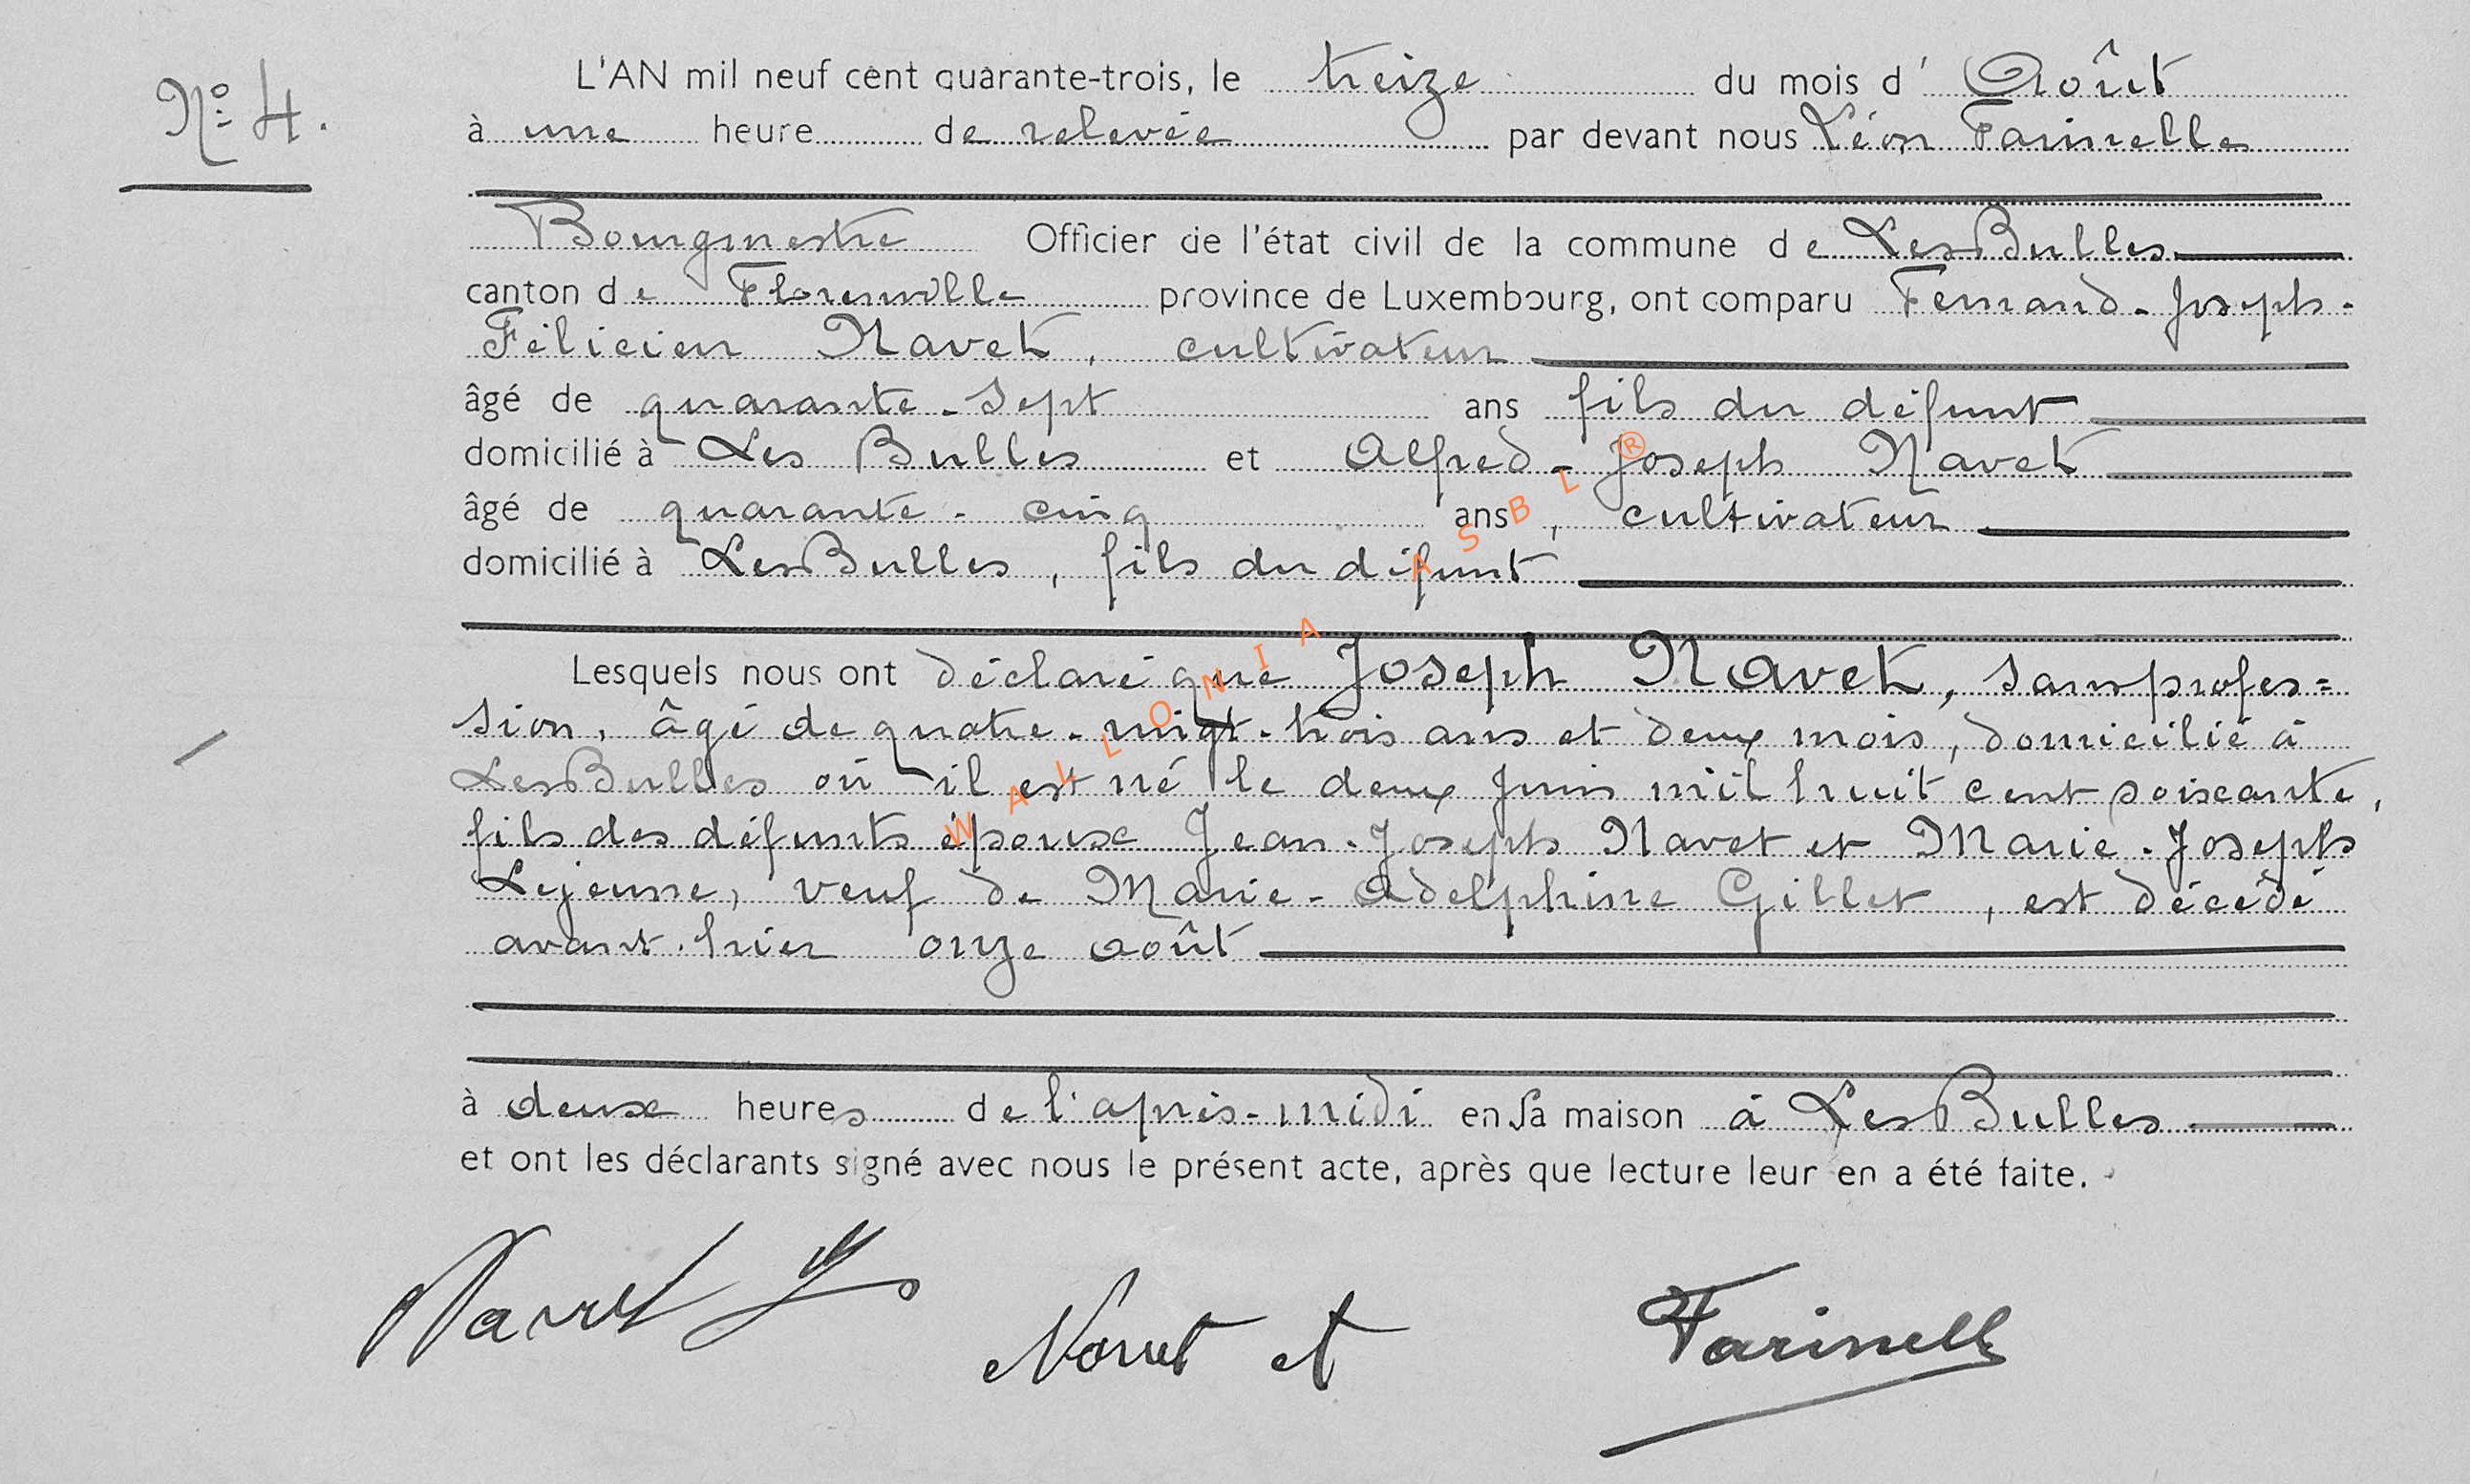 N° 4.
L'AN mil neuf cent quarante-trois, le treize du mois d' Août
à une heure de relevée par devant nous Léon Farinelle
Bourgmestre Officier de l'état civil de la commune de Les Bulles
canton de Florenville province de Luxembourg, ont comparu Fernand-Joseph-
Félicien Navet, cultivateur
âgé de quarante-sept ans fils du défunt
domicilié à Les Bulles et Alfred-Joseph Navet
âgé de quarante-cinq ans, cultivateur
domicilié à Les Bulles, fils du défunt
Lesquels nous ont déclaré que Joseph Navet, sans profes=
sion, âgé de quatre-vingt-trois ans et deux mois, domicilié à
Les Bulles où il est né le deux juin mil huit cent soixante,
fils des défunts époux Jean-Joseph Navet et Marie-Joseph
Lejeune, veuf de Marie-Adelphine Gillet, est décédé
avant-hier onze août
à deux heures de l'après-midi en sa maison à Les Bulles
et ont les déclarants signé avec nous le présent acte, après que lecture leur en a été faite.
Navet Navet Farinelle
WALLONIA ASBL ®